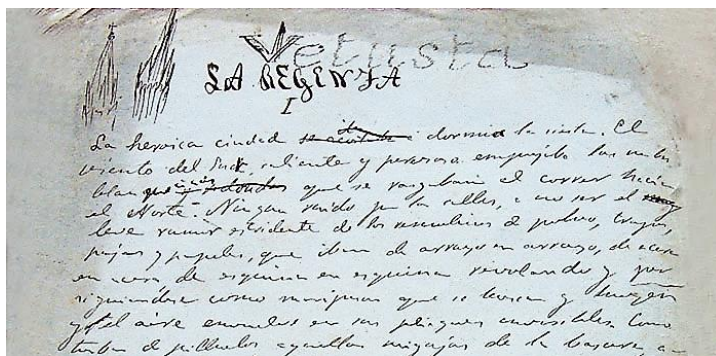 Vetusta
LA REGENTA
I
La heroica ciudad dormia la siesta. El
viento del Sur, caliente y perezoso, empujaba las nubes
blanquecinas que se rasgaban al correr hacia
el Norte. Ningun ruido por las calles, a no ser el
leve rumor estridente de los remolinos de polvo, trapos,
pajas y papeles, que iban de arroyo en arroyo, de acera
en acera, de esquina en esquina revolando y per
siguiendose como mariposas que se buscan y huyen
y q. el aire envuelve en sus pliegues invisibles. Como
turbas de pilluelos aquellas migajas de la basura a